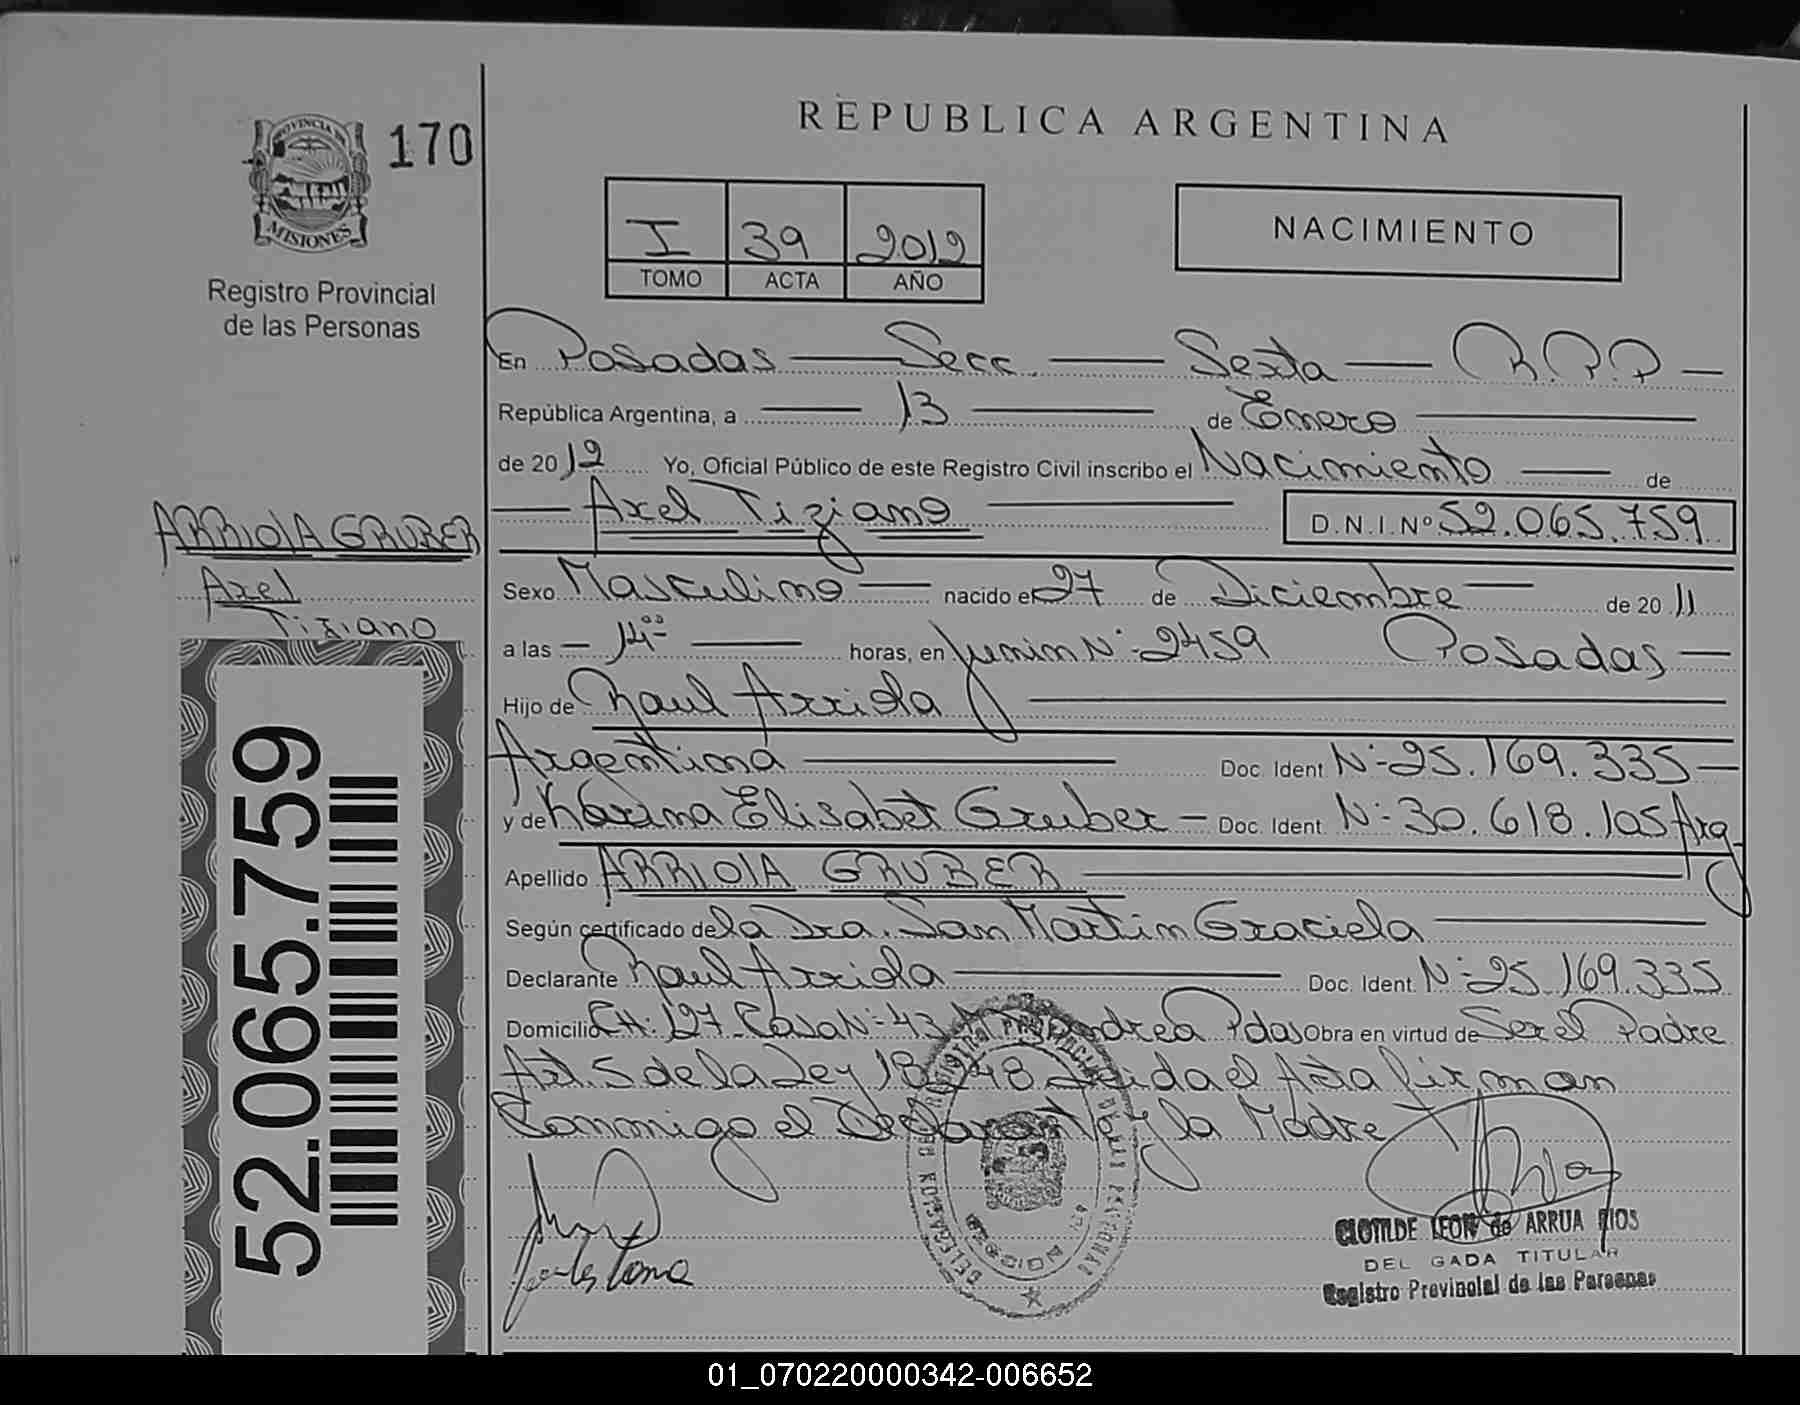 REPUBLICA ARGENTINA
PROVINCIA DE
MISIONES
170
Registro Provincial
de las Personas
I 39 2012
TOMO ACTA AÑO
NACIMIENTO
En Posadas Secc. Sexta R.P.P
República Argentina, a 13 de Enero
de 2012 Yo, Oficial Público de este Registro Civil inscribo el Nacimiento de
Axel Tiziano D.N.I.Nº 52.065.759
ARRIOLA GRUBER
Axel
Tiziano
52.065.759
Sexo Masculino nacido el 27 de Diciembre de 2011
a las 14:00 horas, en Junin Nº 2459 Posadas
Hijo de Raul Arriola
Argentina Doc. Ident Nº 25.169.335
y de Karina Elisabet Gruber Doc. Ident. Nº 30.618.105 Arg
Apellido ARRIOLA GRUBER
Según certificado de la Dra. San Martin Graciela
Declarante Raul Arriola Doc. Ident. Nº 25.169.335
Domicilio CH: 127 Casa Nº 43 Pdas Obra en virtud de Ser el Padre
Art. 5 de la Ley Leida el Acta firman
Conmigo el Declarante y la Madre
CLOTILDE LEON de ARRUA RIOS
DELEGADA TITULAR
Registro Provincial de las Personas
01_070220000342-006652